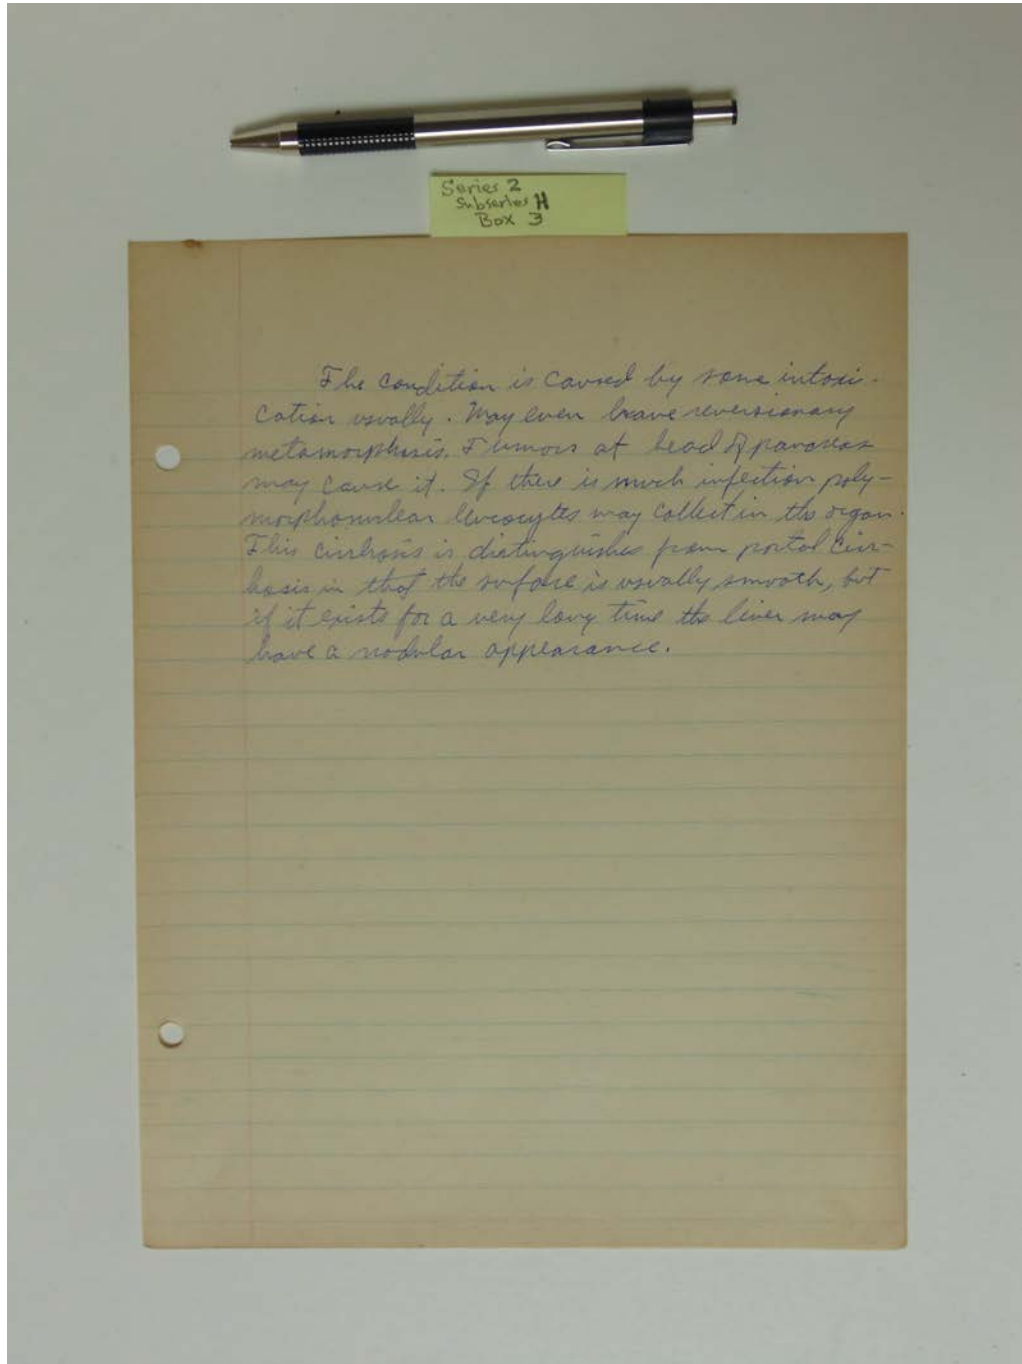 Series 2
Subseries H
Box 3
The condition is caused by some intoxi-
cation usually. May even have reversionary
metamorphisis. Tumors at head of pancreas
may cause it. If there is much infection poly-
morphonulear leucocytes may collect in the organ.
This cirrhosis is distinguishes from portal cirr-
hosis in that the surface is usually smooth, but
if it exists for a very long time the liver may
have a nodular appearance.